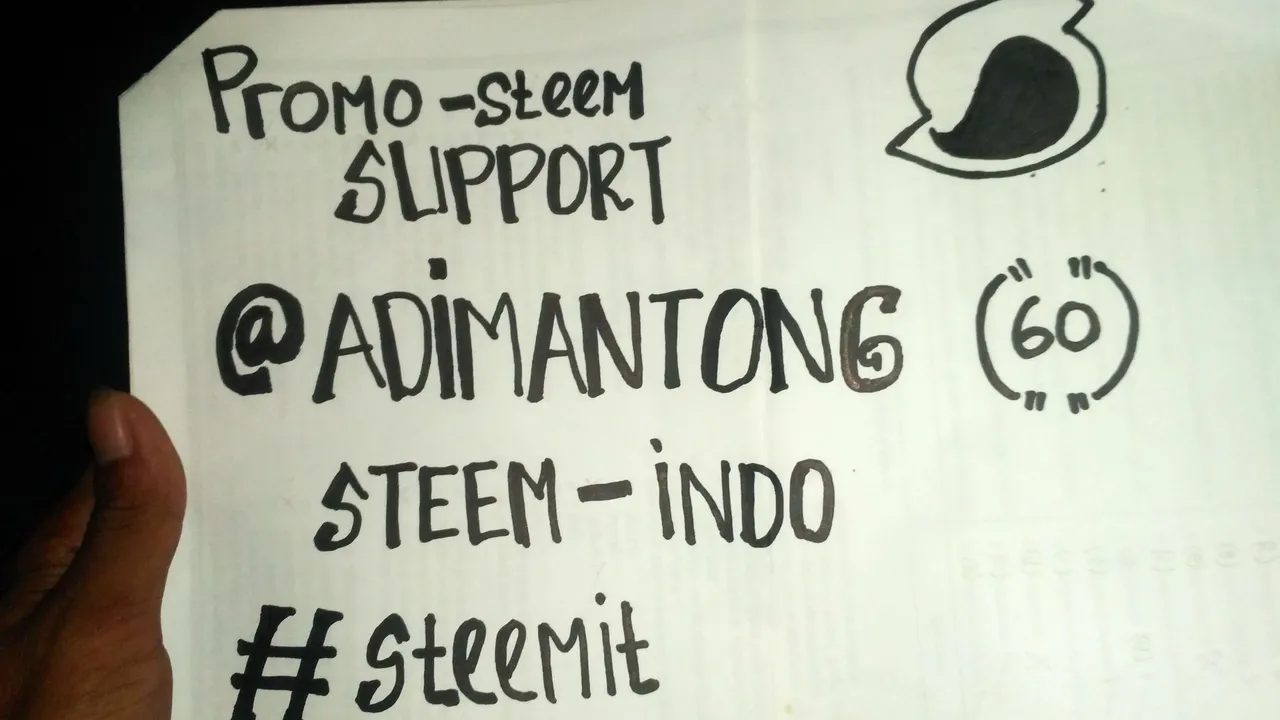 Promo-steem
SUPPORT
@ADiMANTONG
"60"
STEEM-iNDO
#steemit